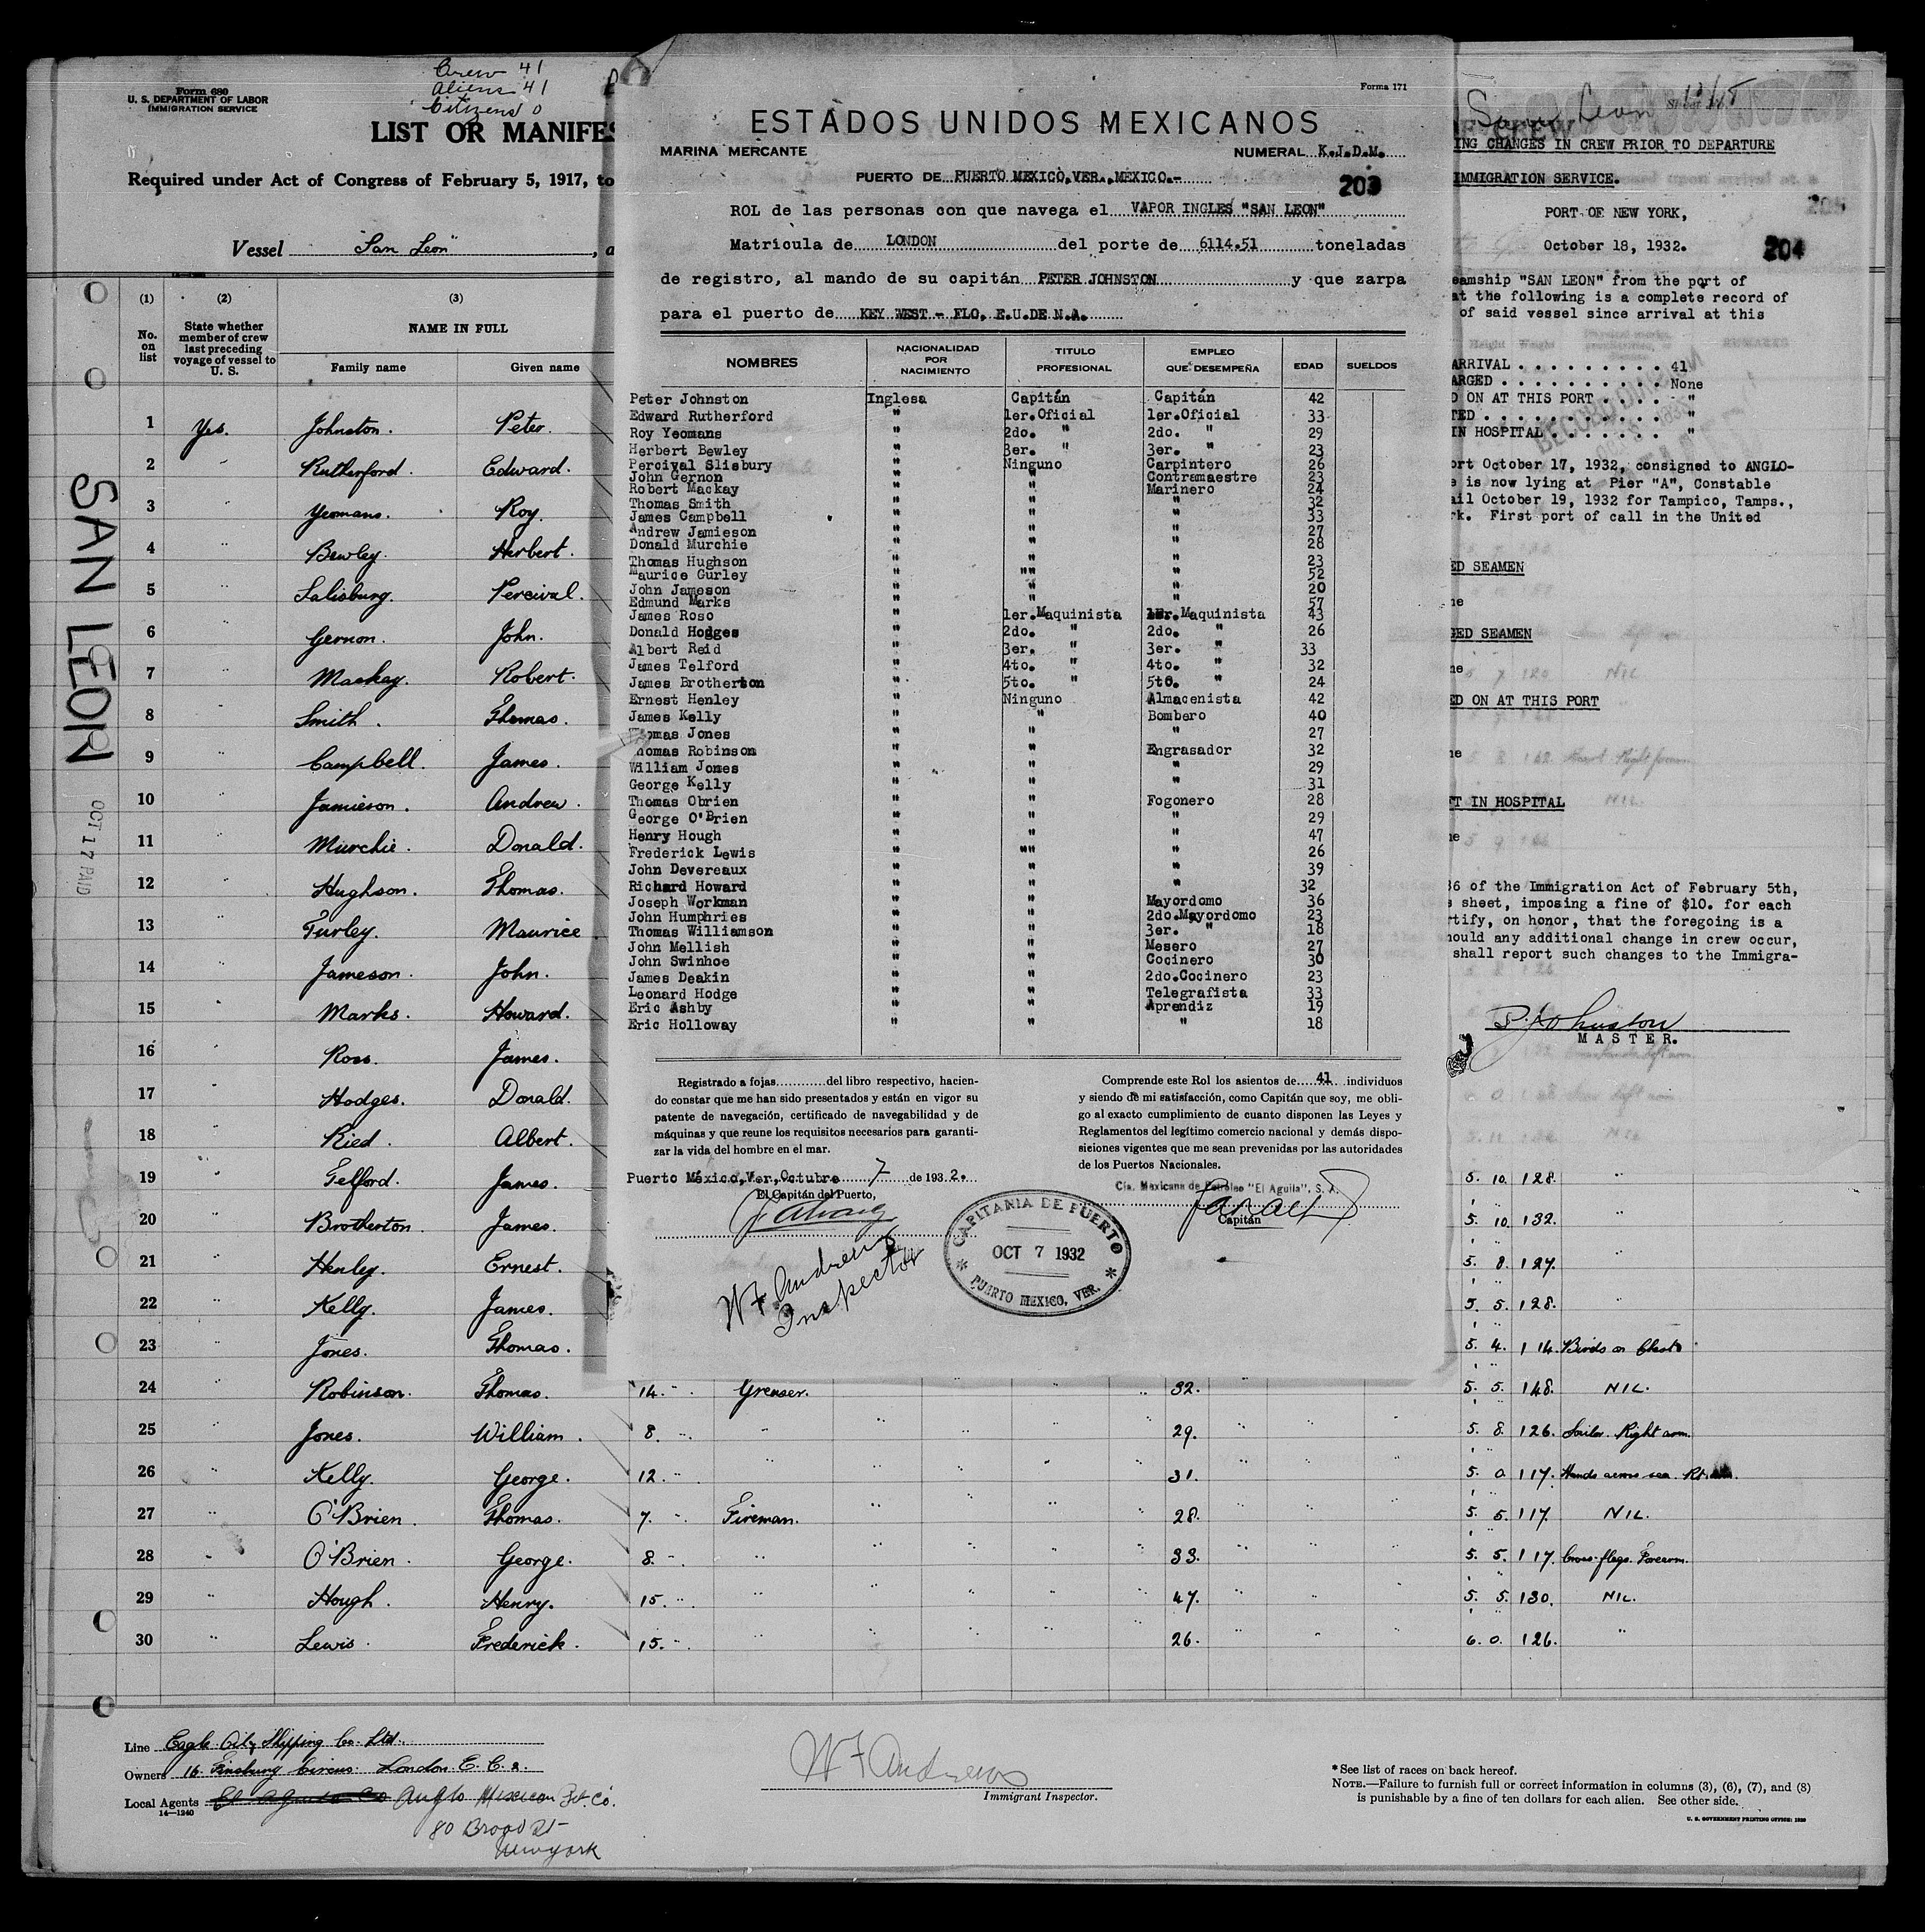 Form 680
U. S. DEPARTMENT OF LABOR
IMMIGRATION SERVICE
Crew 41
Aliens 41
Citizens 0
LIST OR MANIFES
Required under Act of Congress of February 5, 1917, to
Vessel "San Leon", a
(1) (2) (3)
No. on list
State whether member of crew last preceding voyage of vessel to U. S.
NAME IN FULL
Family name Given name
1 Yes. Johnston. Peter.
2 " Rutherford. Edward.
3 " Yeomans. Roy.
4 " Bewley. Herbert.
5 " Salisburg. Percival.
6 " Gernon. John.
7 " Mackay. Robert.
8 " Smith. Thomas.
9 " Campbell. James.
10 " Jamieson. Andrew.
11 " Murchie. Donald.
12 " Hughson. Thomas.
13 " Turley. Maurice
14 " Jameson. John.
15 " Marks. Howard.
16 " Ross. James.
17 " Hodges. Donald.
18 " Ried. Albert.
19 " Telford. James. 5. 10. 128. "
20 " Brotherton. James. 5. 10. 132. "
21 " Henley. Ernest. 5. 8. 127. "
22 " Kelly. James. 5. 5. 128. "
23 " Jones. Thomas. 5. 4. 114. Birds on Chest
24 " Robinson. Thomas. 14. " Greaser. " 32. 5. 5. 148. NIL.
25 " Jones. William. 8. " " " " 29. " 5. 8. 126. Sailor. Right arm.
26 " Kelly. George. 12. " " " " " 31. " 5. 0. 117. Hands across sea. Rt.
27 " O'Brien. Thomas. 7. " Fireman. " " " " 28. " 5. 5. 117. NIL.
28 " O'Brien. George. 8. " " " " " 33. " 5. 5. 117. Cross-flags. Forearm.
29 " Hough. Henry. 15. " " " " " 47. " 5. 5. 130. NIL.
30 " Lewis. Frederick. 15. " " " " " 26. " 6. 0. 126. "
Line Eagle Oil & Shipping Co. Ltd.
Owners 16. Finsbury Circus. London. E. C. 2.
Local Agents Anglo Mexican Pet. Co.
14—1240
80 Broad St
New York
W F Andrews
Immigrant Inspector.
* See list of races on back hereof.
NOTE.—Failure to furnish full or correct information in columns (3), (6), (7), and (8)
is punishable by a fine of ten dollars for each alien. See other side.
U. S. GOVERNMENT PRINTING OFFICE: 1930
SAN LEON
OCT 17 PAID
Forma 171
ESTADOS UNIDOS MEXICANOS
MARINA MERCANTE NUMERAL K.J.D.M.
PUERTO DE PUERTO MEXICO,VER.,MEXICO.-
203
ROL de las personas con que navega el VAPOR INGLES "SAN LEON"
Matrícula de LONDON del porte de 6114.51 toneladas
de registro, al mando de su capitán PETER JOHNSTON y que zarpa
para el puerto de KEY WEST - FLO, E.U.DE N.A.
NOMBRES NACIONALIDAD POR NACIMIENTO TITULO PROFESIONAL EMPLEO QUE DESEMPEÑA EDAD SUELDOS
Peter Johnston Inglesa Capitán Capitán 42
Edward Rutherford " 1er.Oficial 1er.Oficial 33
Roy Yeomans " 2do. " 2do. " 29
Herbert Bewley " 3er. " 3er. " 23
Percival Slisbury " Ninguno Carpintero 26
John Gernon " " Contramaestre 23
Robert Mackay " " Marinero 24
Thomas Smith " " " 32
James Campbell " " " 33
Andrew Jamieson " " " 27
Donald Murchie " " " 28
Thomas Hughson " " " 23
Maurice Gurley " "" " 52
John Jameson " " " 20
Edmund Marks " " " 57
James Roso " 1er.Maquinista 1er.Maquinista 43
Donald Hodges " 2do. " 2do. " 26
Albert Reid " 3er. " 3er. " 33
James Telford " 4to. " 4to. " 32
James Brotherton " 5to. " 5to. " 24
Ernest Henley " Ninguno Almacenista 42
James Kelly " " Bombero 40
Thomas Jones " " " 27
Thomas Robinson " " Engrasador 32
William Jones " " " 29
George Kelly " " " 31
Thomas Obrien " " Fogonero 28
George O'Brien " " " 29
Henry Hough " " " 47
Frederick Lewis " "" " 26
John Devereaux " " " 39
Richard Howard " " " 32
Joseph Workman " " Mayordomo 36
John Humphries " " 2do.Mayordomo 23
Thomas Williamson " " 3er. " 18
John Mellish " " Mesero 27
John Swinhoe " " Cocinero 30
James Deakin " " 2do.Cocinero 23
Leonard Hodge " " Telegrafista 33
Eric Ashby " " Aprendiz 19
Eric Holloway " " " 18
Registrado a fojas............del libro respectivo, hacien-
do constar que me han sido presentados y están en vigor su
patente de navegación, certificado de navegabilidad y de
máquinas y que reune los requisitos necesarios para garanti-
zar la vida del hombre en el mar.
Puerto México,Ver,Octubre 7 de 1932.
El Capitán del Puerto,
W F Andrews
Inspector
Comprende este Rol los asientos de 41 individuos
y siendo de mi satisfacción, como Capitán que soy, me obli-
go al exacto cumplimiento de cuanto disponen las Leyes y
Reglamentos del legítimo comercio nacional y demás dispo-
siciones vigentes que me sean prevenidas por las autoridades
de los Puertos Nacionales.
Cia. Mexicana de Petroleo "El Aguila", S. A.
Capitán
CAPITANIA DE PUERTO
OCT 7 1932
PUERTO MEXICO, VER.
San Leon
CREW
ING CHANGES IN CREW PRIOR TO DEPARTURE
IMMIGRATION SERVICE.
PORT OF NEW YORK,
October 18, 1932.
204
205
eamship "SAN LEON" from the port of
at the following is a complete record of
of said vessel since arrival at this
ARRIVAL . . . . . . . . . 41
ARGED . . . . . . . . . . None
D ON AT THIS PORT . . . . . "
TED . . . . . . . . . . . "
IN HOSPITAL . . . . . . . "
ort October 17, 1932, consigned to ANGLO-
e is now lying at Pier "A", Constable
ail October 19, 1932 for Tampico, Tamps.,
rk. First port of call in the United
ED SEAMEN
ne
GED SEAMEN
ne
ED ON AT THIS PORT
ne
FT IN HOSPITAL
ne
36 of the Immigration Act of February 5th,
s sheet, imposing a fine of $10. for each
rtify, on honor, that the foregoing is a
hould any additional change in crew occur,
shall report such changes to the Immigra-
P. Johnston
MASTER.